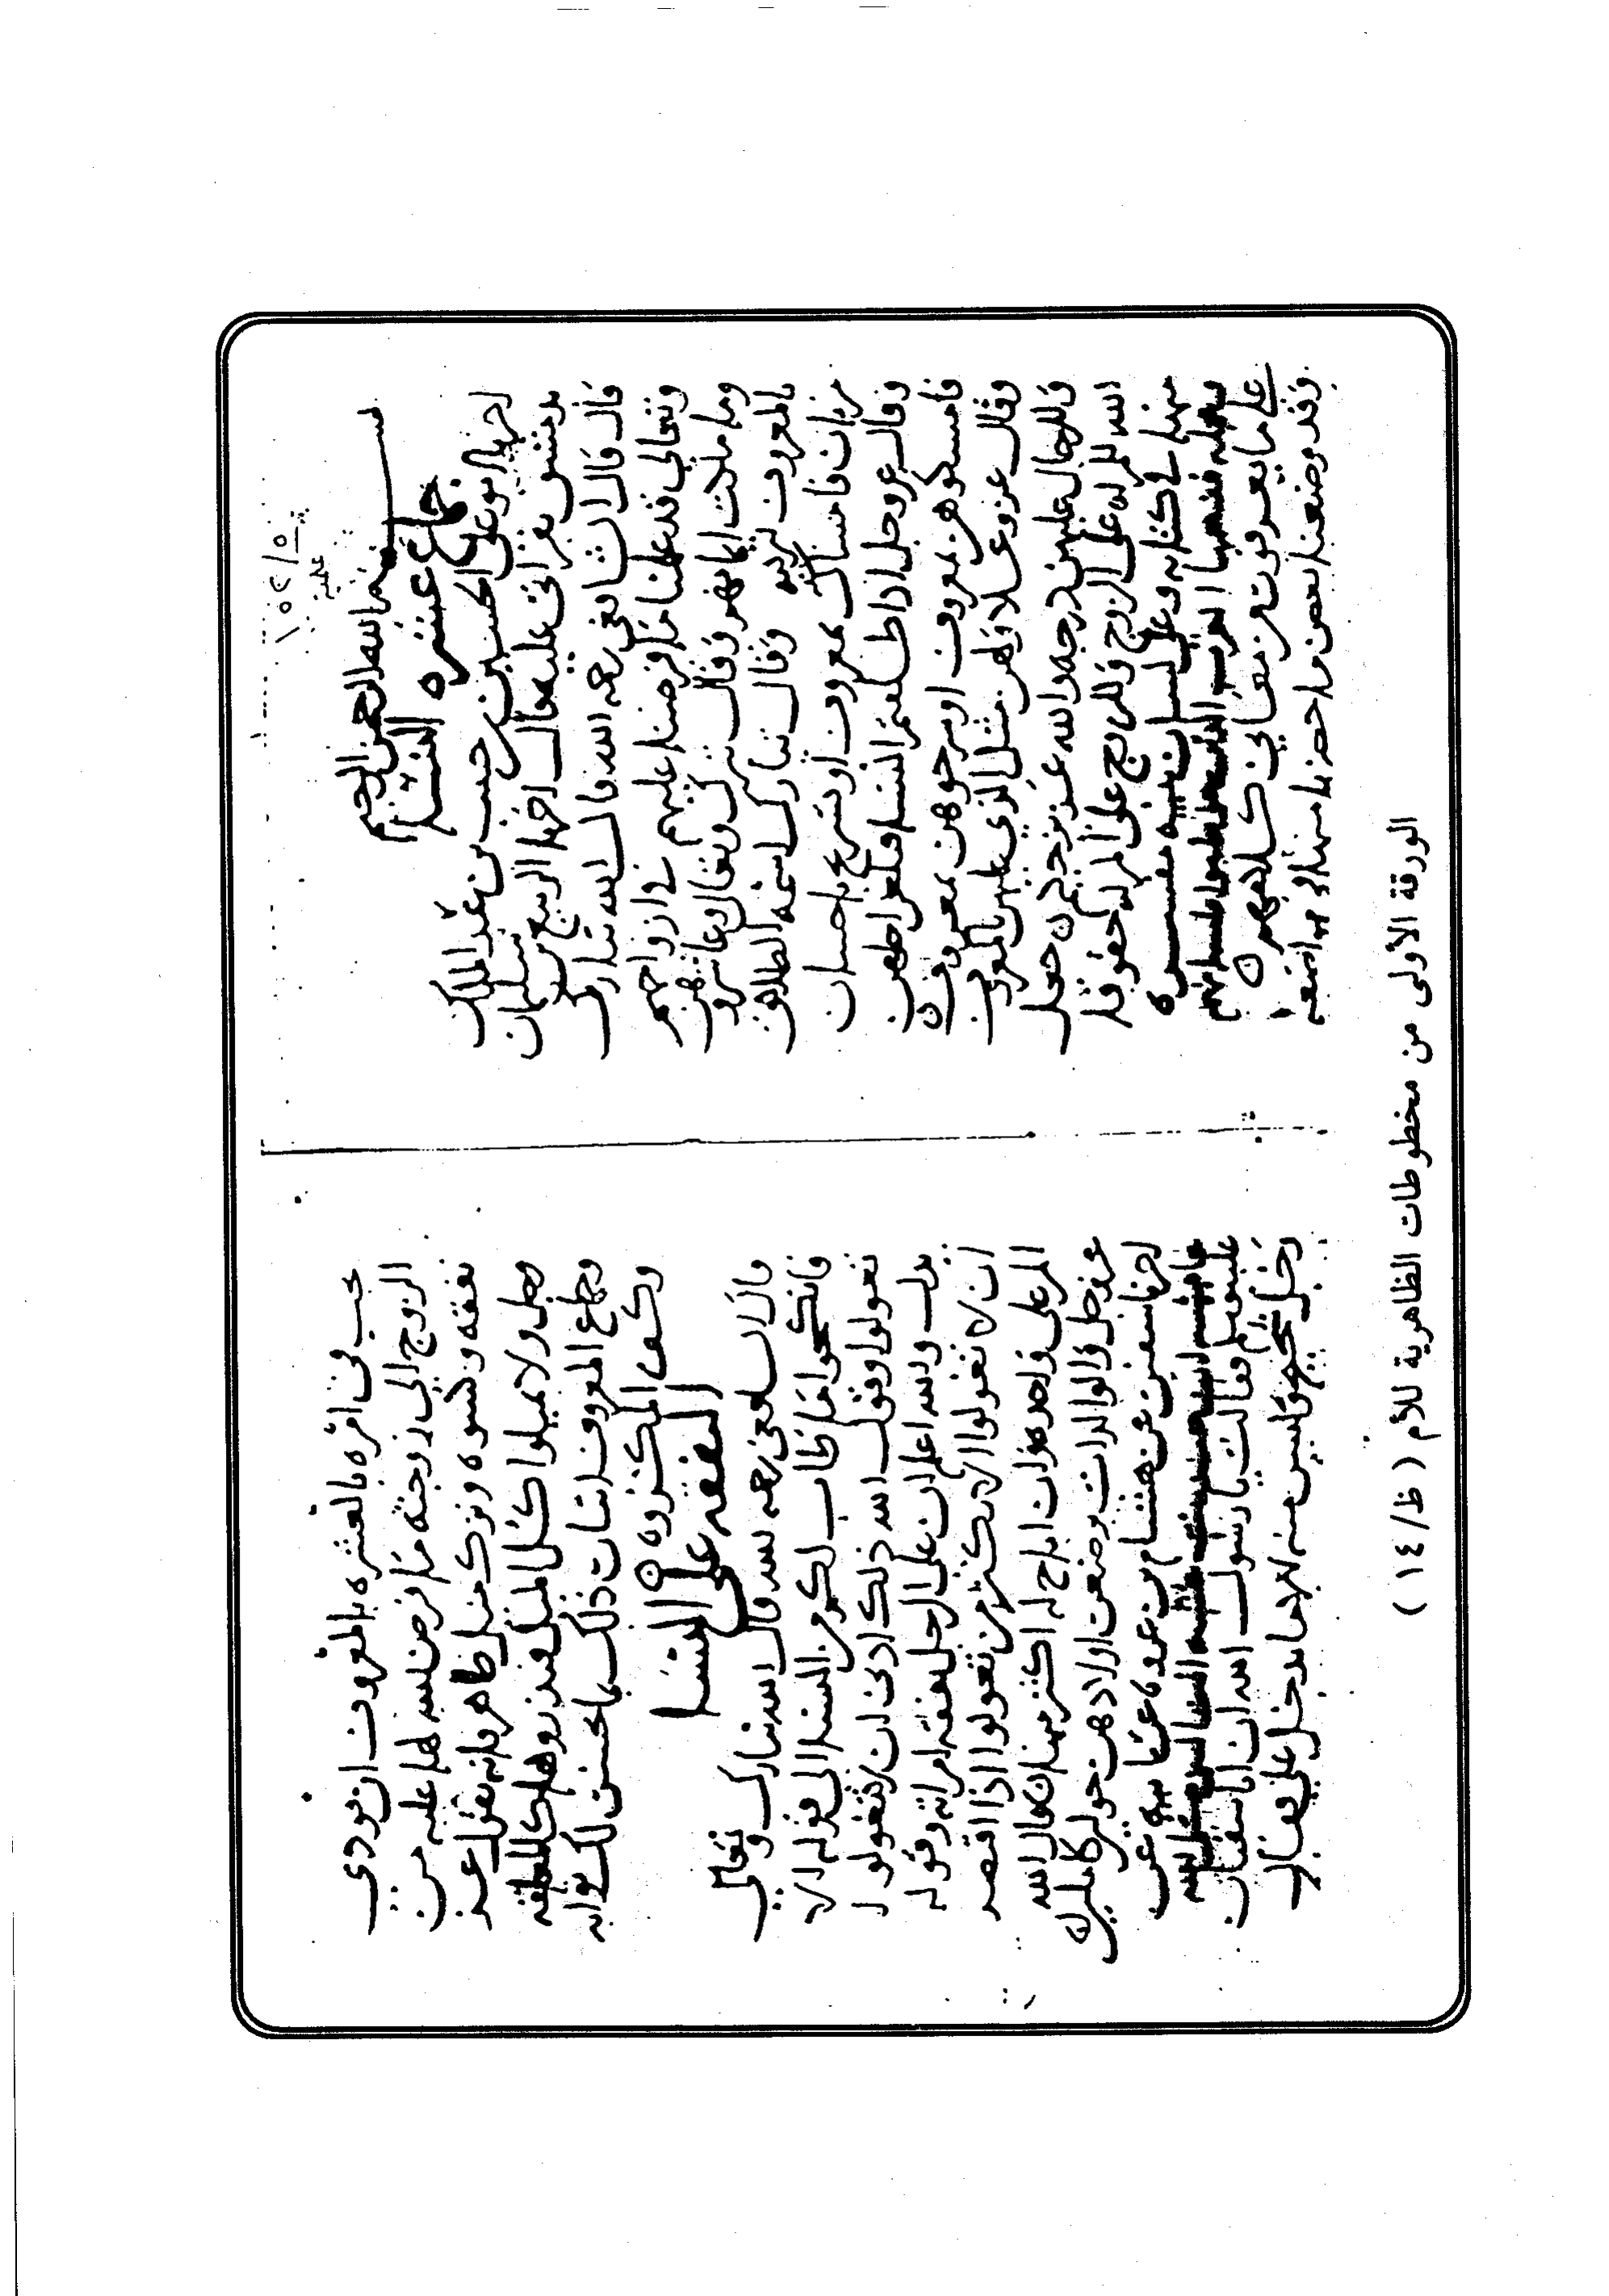 بسم الله الرحمن الرحيم
جماع عشره النسا
اخبرنا ابو على الحسين بن حبيب بن عبد الملك
بدمشق بقراتى عليه قال اخبرنا الربيع بن سليمان
قال قال الشافعى رحمه الله قال الله تبارك
وتعالى قد علمنا ما فرضنا عليهم فى ازواجهم
وما ملكت ايمانهم وقال تبارك وتعالى وعاشروهن
بالمعروف وقال تبارك اسمه الطلاق
مرتان فامساك بمعروف او تسريح باحسان
وقال عز وجل اذا طلقتم النسا فبلغن اجلهن
فامسكوهن بمعروف او سرحوهن بمعروف
وقال عز وعلا ولهن مثل الذي عليهن بالمعروف
وللرجال عليهن درجه والله عزيز حكيم فجعل
الله للمراه على الزوج وللزوج على المراه حقوقا
بينها فى كتابه وعلى لسان نبيه مفسره
ومجمله ففهمها العرب الذين خوطبوا بلسانهم
على ما يعرفون من معاني كلامهم
وقد وضعنا بعض ما حضرنا منها فى مواضعه
يجب فى امره بالعشره بالمعروف ان يودي
الزوج الى زوجته ما فرض الله لها عليه من
نفقه وكسوه وترك ميل ظاهر فانه يقول عز
وجل ولا تميلوا كل الميل فتذروها كالمعلقه
وجماع المعروف اتيان ذلك بما يحسن لك ثوابه
وكف المكروه
النفقه على النسا
قال الشافعى رحمه الله قال الله تبارك وتعالى
فانكحوا ما طاب لكم من النسا الى قوله الا
تعولوا وقول الله ذلك ادنى ان لا تعولوا
يدل والله اعلم ان على الرجل نفقه امراته وقوله
ان لا تعولوا الا يكثر من تعولوا اذا اقتصر
المر على واحده وان اباح له اكثر منها وقال الله
عز وجل والوالدات يرضعن اولادهن حولين كاملين
اخبرنا سفيان عن هشام بن عروه عن ابيه عن
عايشه ان هند بنت عتبه اتت النبى صلى الله
عليه وسلم فقالت يا رسول الله ان ابا سفيان
رجل شحيح وليس منه الا ما يدخل على فقال
الورقة الأولى من مخطوطات الظاهرية للأم ( ظ/١٤ )